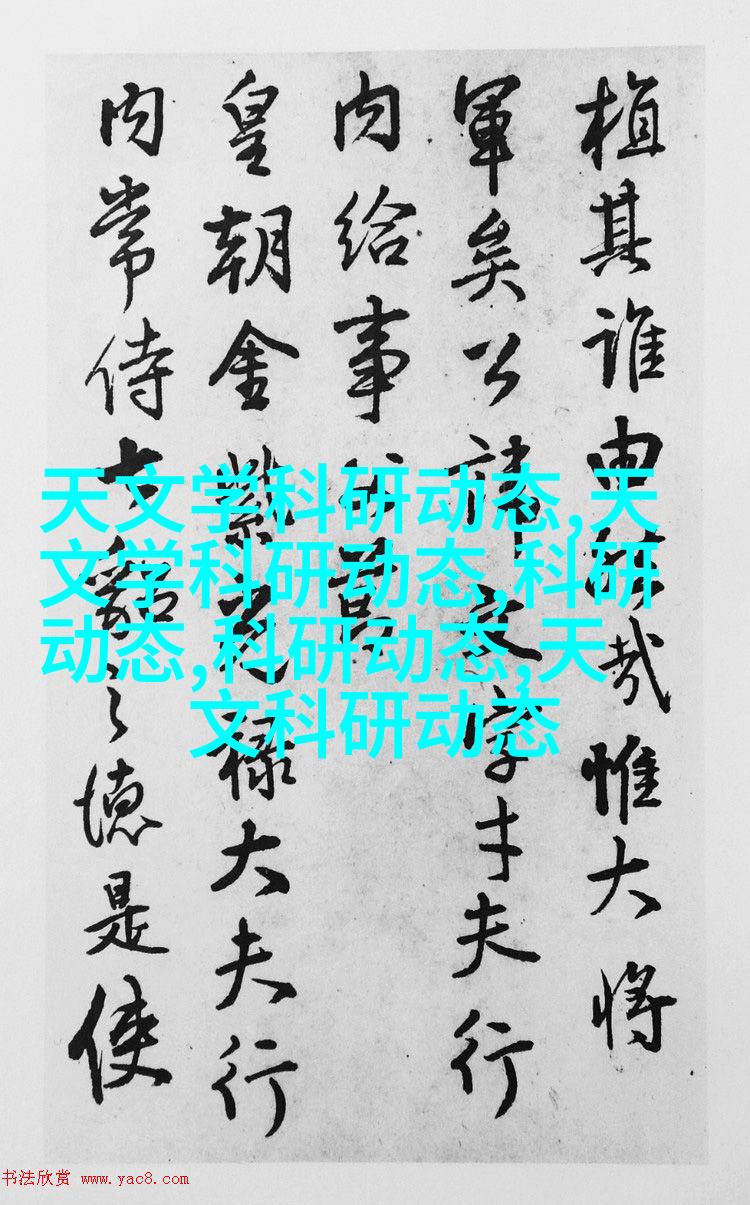 植其誰由哉惟大將
軍矣公諱文字才夫行
內給事
皇朝金紫光祿大夫行
內常侍七貂之德是使
天文学科研动态,天
文学科研动态,科研
动态,科研动态,天
文科研动态
书法欣赏 www.yac8.com